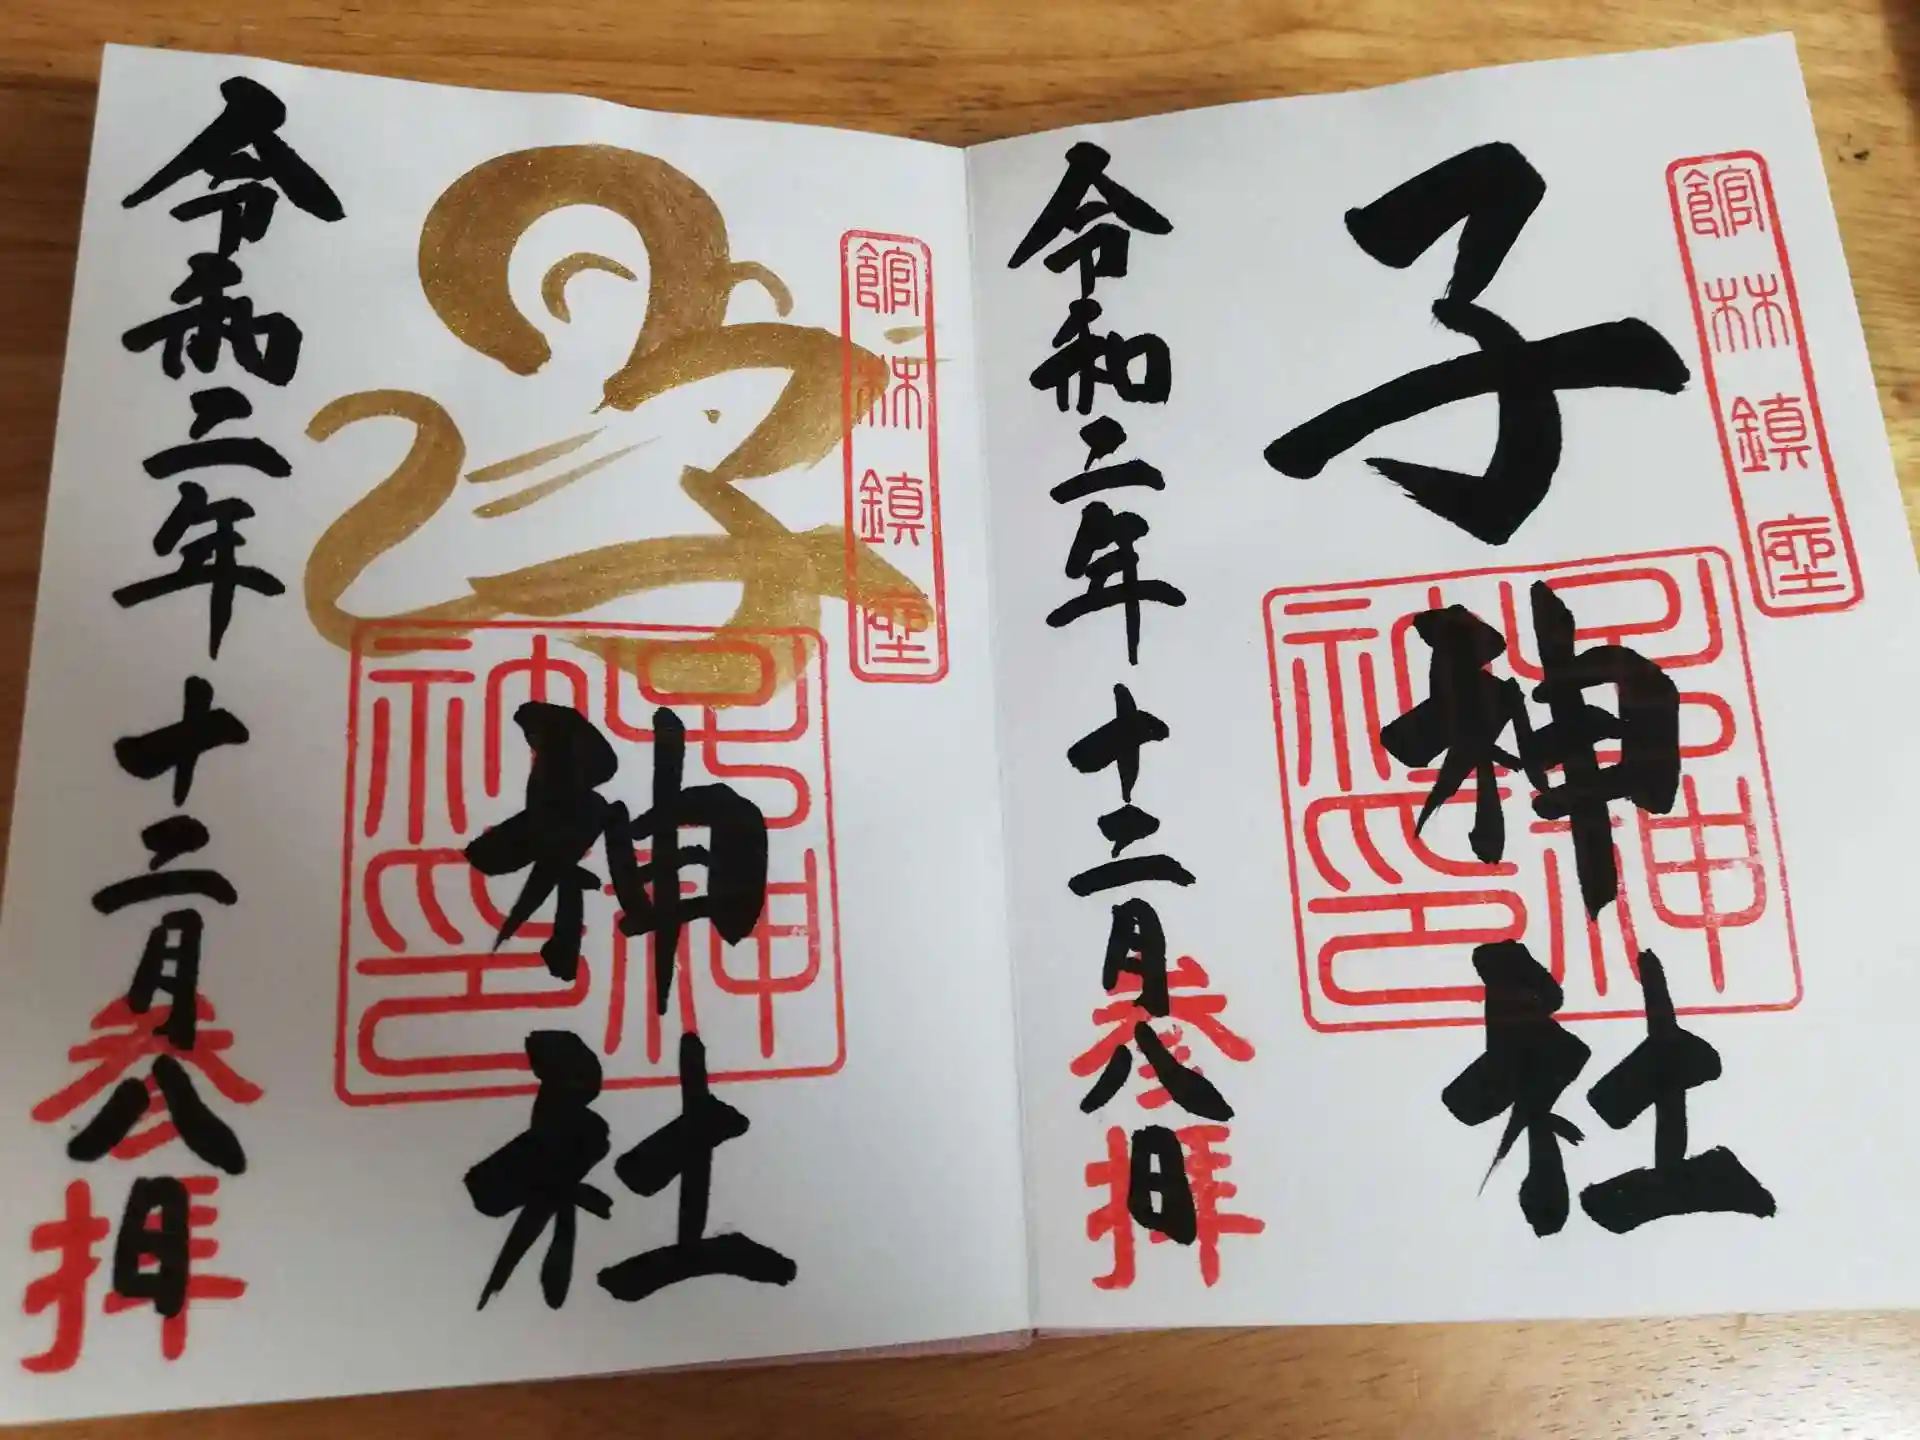 館林鎮座
子神社
子神社印
令和二年十二月八日
参拝
館林鎮座
子神社
子神社印
令和二年十二月八日
参拝